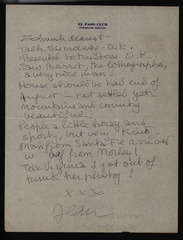 EL PASO CLUB
COLORADO SPRINGS
dearest
Talk this monday - O.K.
Presented to trustees O.K.
Saw Barret, the lithographer,
a very nice man.
House should be had end of
August — not settled yet.
Mountains and country
beautiful.
People a little horsy and
sporty, but very kind
Man from Santa Fe arrived
w from Morley!
Tell Virginia I got out of
trunk her
X X X
Jean